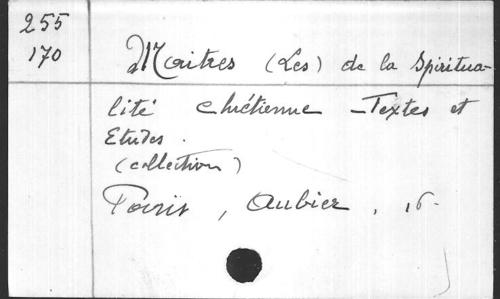 255
170
Maitres (Les) de la Spiritua-
lité chrétienne _Textes et
Etudes.
(collection)
Paris, Aubier, 16.